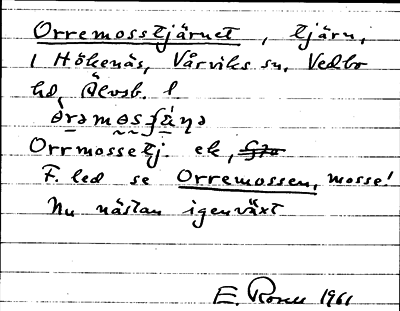 Orremosstjärnet, tjärn,
i Hökenäs, Vårviks sn, Vedbo
hd, Älvsb. l
Orrmossetj. ek,
F. led se Orremossen, mosse!
Nu nästan igenväxt
E. 1961